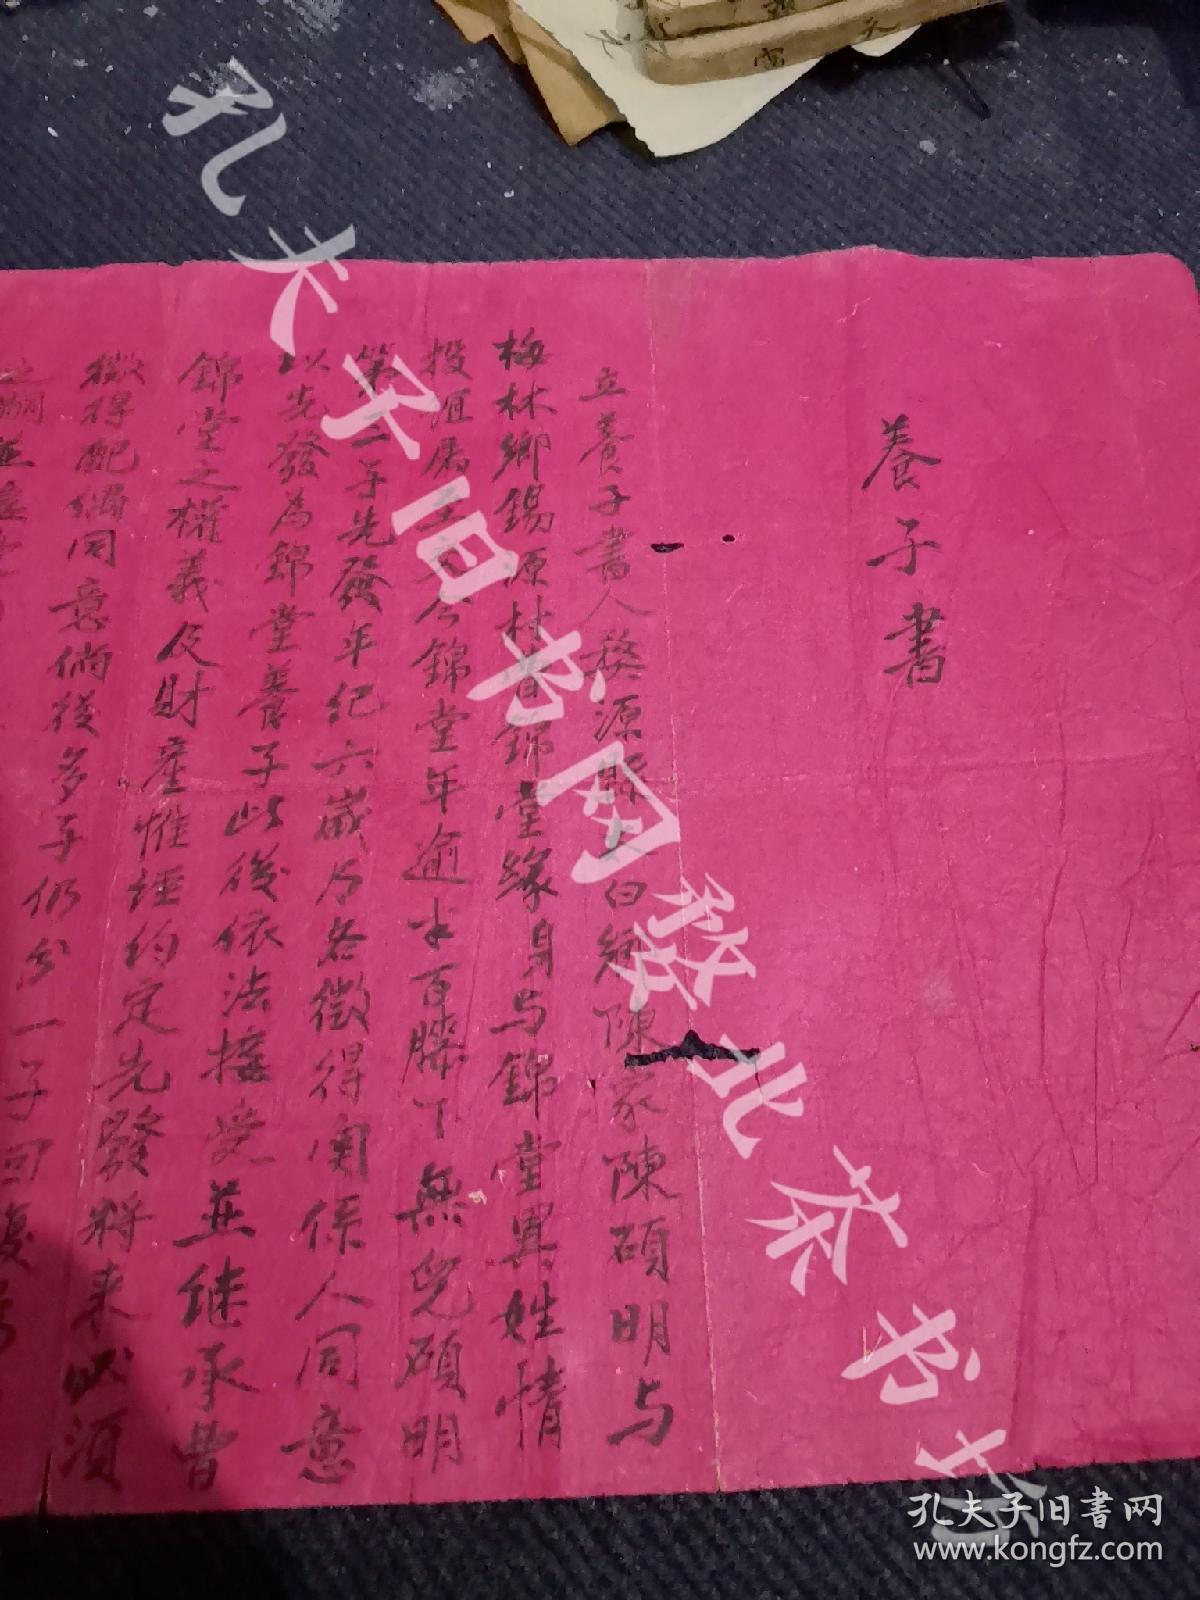 養子書
立養子書人婺源縣太白 陳家陳碩明与
梅林鄉錫源村曹錦堂緣身与錦堂異姓情
投誼属至交今錦堂年逾半百膝下無兒碩明
第二子先發年纪六歲乃各徵得関係人同意
以先發爲錦堂養子此後依法接受並继承曹
錦堂之權義及財産惟経约定先發将来必須
徵得配偶同意倘後多子仍分一子回復
孔夫子旧书网婺北茶书坊
孔夫子旧书网
www.kongfz.com